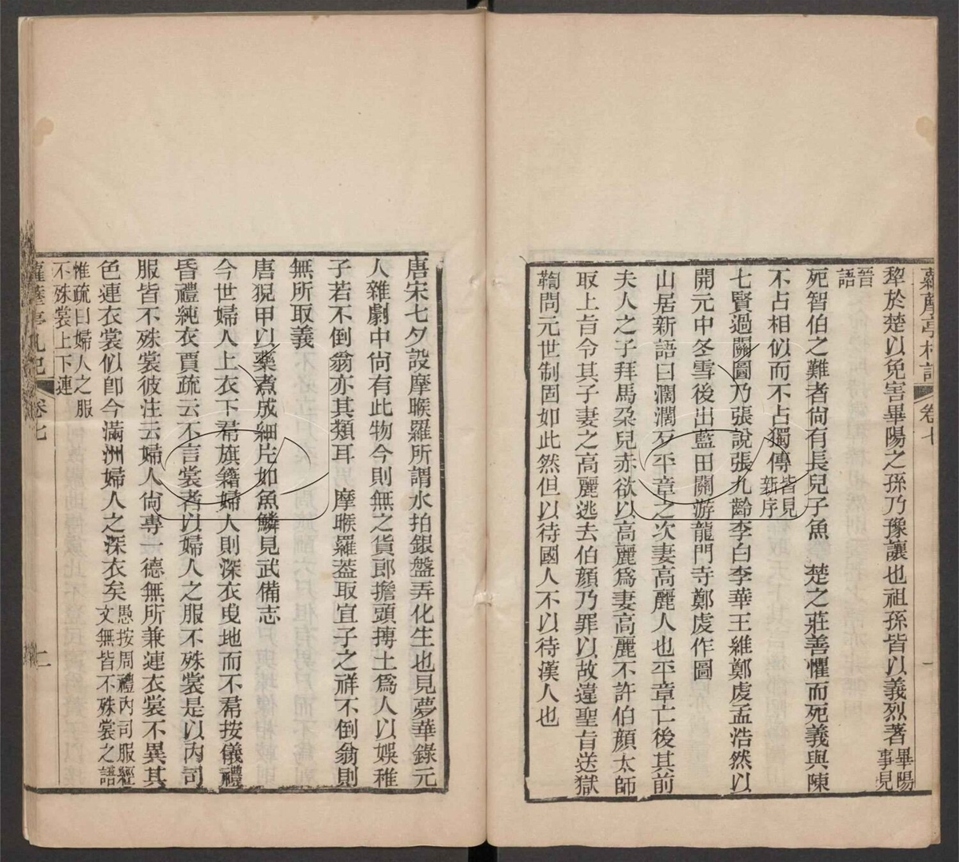 蘿藦亭札記 卷七 一
犂於楚以免害畢陽之孫乃豫讓也祖孫皆以義烈著畢陽事見
晉語
死智伯之難者尚有長兒子魚 楚之莊善懼而死義與陳
不占相似而不占獨傳皆見新序
七賢過關圖乃張說張九齡李白李華王維鄭虔孟浩然以
開元中冬雪後出藍田關游龍門寺鄭虔作圖
山居新語曰濶濶歹平章之次妻高麗人也平章亡後其前
夫人之子拜馬朶兒赤欲以高麗爲妻高麗不許伯顏太師
取上旨令其子妻之高麗逃去伯顏乃罪以故違聖旨送獄
鞫問元世制固如此然但以待國人不以待漢人也
唐宋七夕設摩睺羅所謂水拍銀盤弄化生也見夢華錄元
人雜劇中尚有此物今則無之貨郎擔頭摶土爲人以娛稚
子若不倒翁亦其類耳 摩睺羅葢取宜子之祥不倒翁則
無所取義
唐猊甲以藥煮成細片如魚鱗見武備志
今世婦人上衣下帬旗籍婦人則深衣曳地而不帬按儀禮
昏禮純衣賈疏云不言裳者以婦人之服不殊裳是以內司
服皆不殊裳彼注云婦人尚專一德無所兼連衣裳不異其
色連衣裳似卽今滿洲婦人之深衣矣愚按周禮內司服經文無皆不殊裳之語
惟疏曰婦人之服不殊裳上下連
蘿藦亭札記 卷七 二